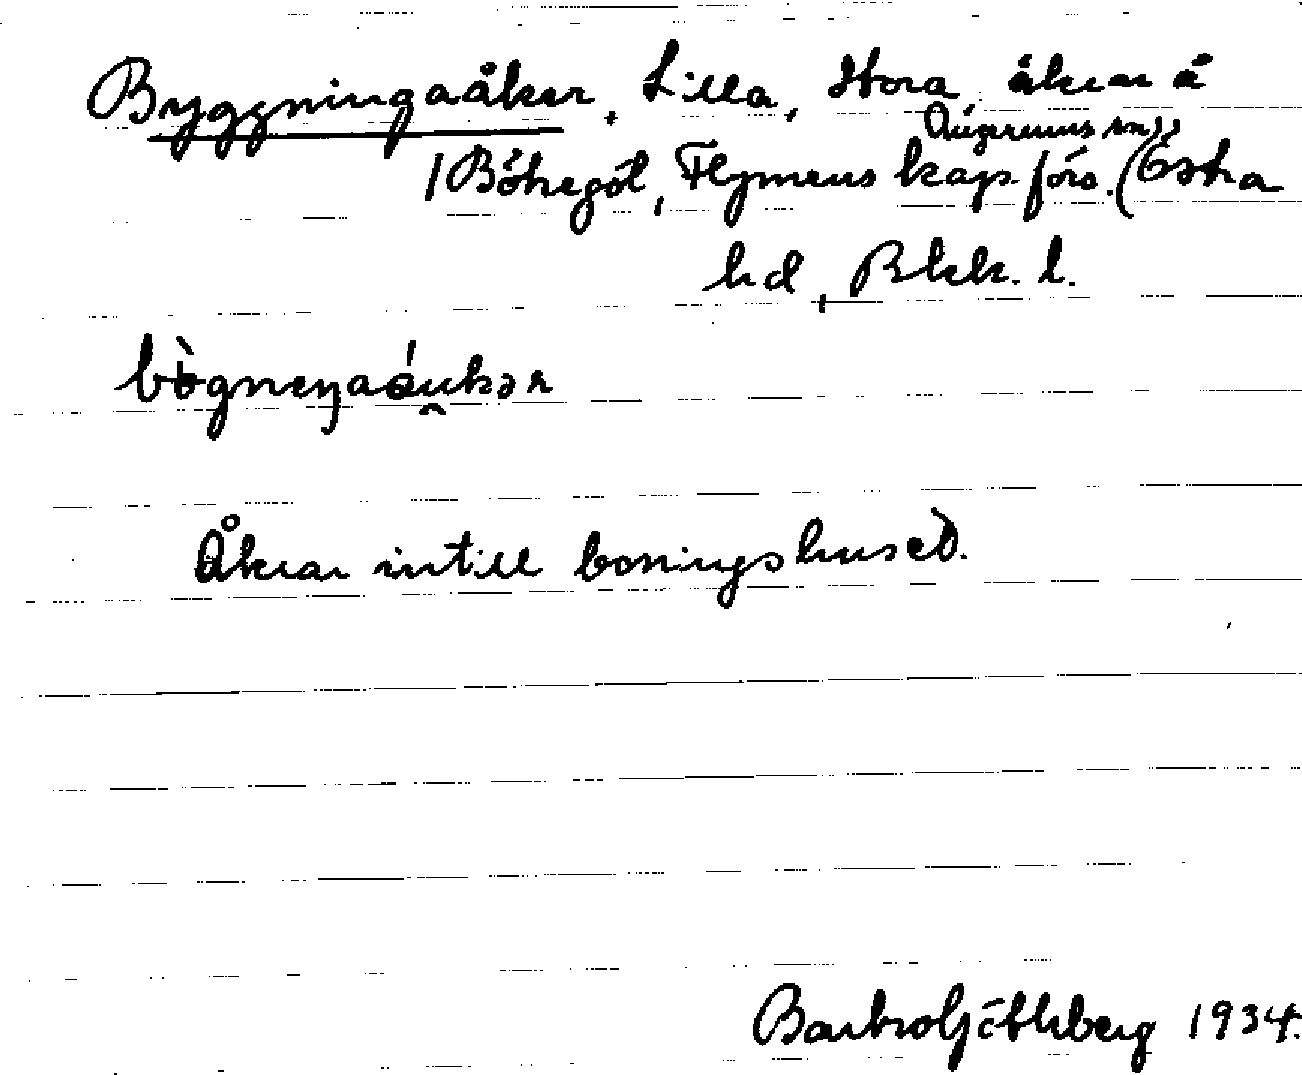 Byggningaåker, Lilla, Stora, åkrar å
Augerums sn))
1 Bökegöl, Flymens kap.förs. (Östra
hd, Blek. l.
Åkrar intill boningshuset.
1934.